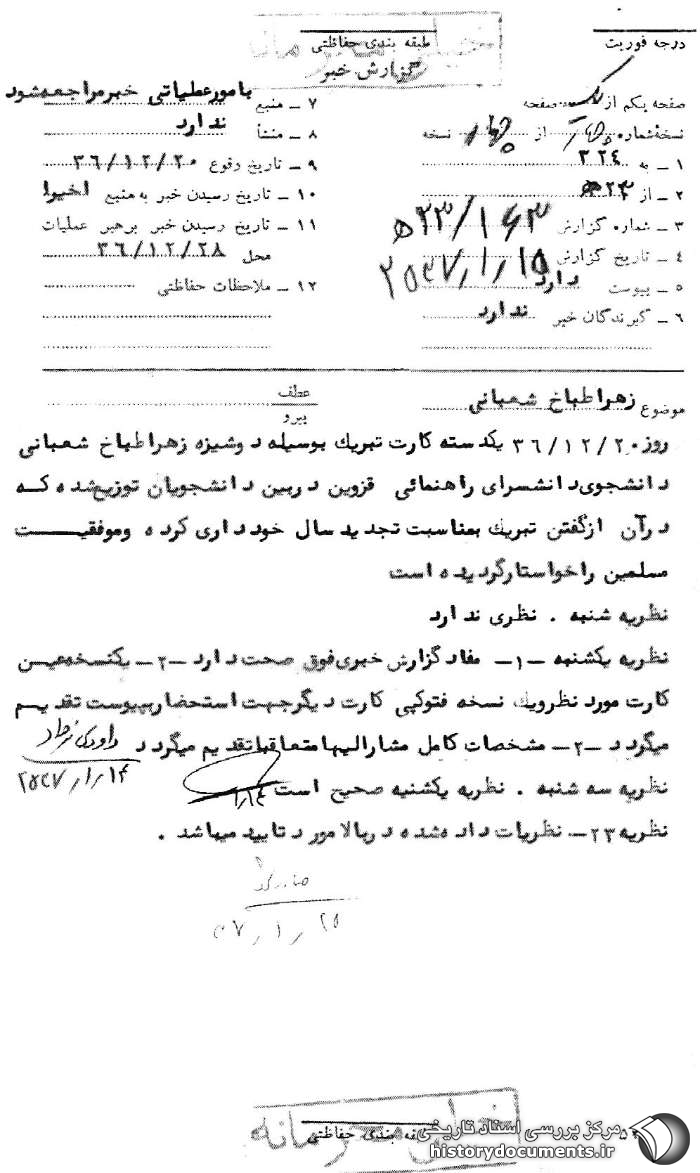 خیلی محرمانه
درجه فوریت
طبقه بندی حفاظتی
گزارش خبر
صفحه یکم از یک صفحه
نسخه شماره از چهار نسخه
۱ ـ به ۳۲۴
۲ ـ از ۲۳ ه
۳ ـ شماره گزارش ۲۳/۱۶۳ ه
۴ ـ تاریخ گزارش ۲۵۳۷/۱/۱۵
۵ ـ پیوست دارد
۶ ـ گیرندگان خبر ندارد
۷ ـ منبع بامورعطیاتی خبرمراجعه‌شود
۸ ـ منشأ ندارد
۹ ـ تاریخ وقوع ۳۶/۱۲/۲۰
۱۰ ـ تاریخ رسیدن خبر به منبع اخیرا
۱۱ ـ تاریخ رسیدن خبر برهبر عملیات
محل ۳۶/۱۲/۲۸
۱۲ ـ ملاحظات حفاظتی
موضوع زهرا طباخ شعبانی
عطف
پیرو
روز ۳۶/۱۲/۲۰ یکدسته کارت تبریك بوسیله دوشیزه زهرا طباخ شعبانی
دانشجوی دانشسرای راهنمائی قزوین دربین دانشجویان توزیع‌شده که
درآن ازگفتن تبریك بمناسبت تجدید سال خودداری کرده وموفقیـــت
مسلمین راخواستارگردیده است
نظریه شنبه . نظری ندارد
نظریه یکشنبه ـ۱ـ مفادگزارش خبری فوق صحت دارد ـ۲ـ یکنسخه‌عیــن
کارت مورد نظرویك نسخه فتوکپی کارت دیگرجهت استحضاربپیوست تقدیـم
میگردد ـ۲ـ مشخصات کامل مشارالیهامتعاقباتقدیم میگردد
۲۵۳۷/۱/۱۴
نظریه سه شنبه . نظریه یکشنبه صحیح است
۱/۱۴
نظریه ۲۳ـ نظریات داده‌شده دربالا مورد تایید میباشد .
۳۷/۱/۱۵
طبقه بندی حفاظتی
خیلی محرمانه
مرکز بررسی اسناد تاریخی
historydocuments.ir